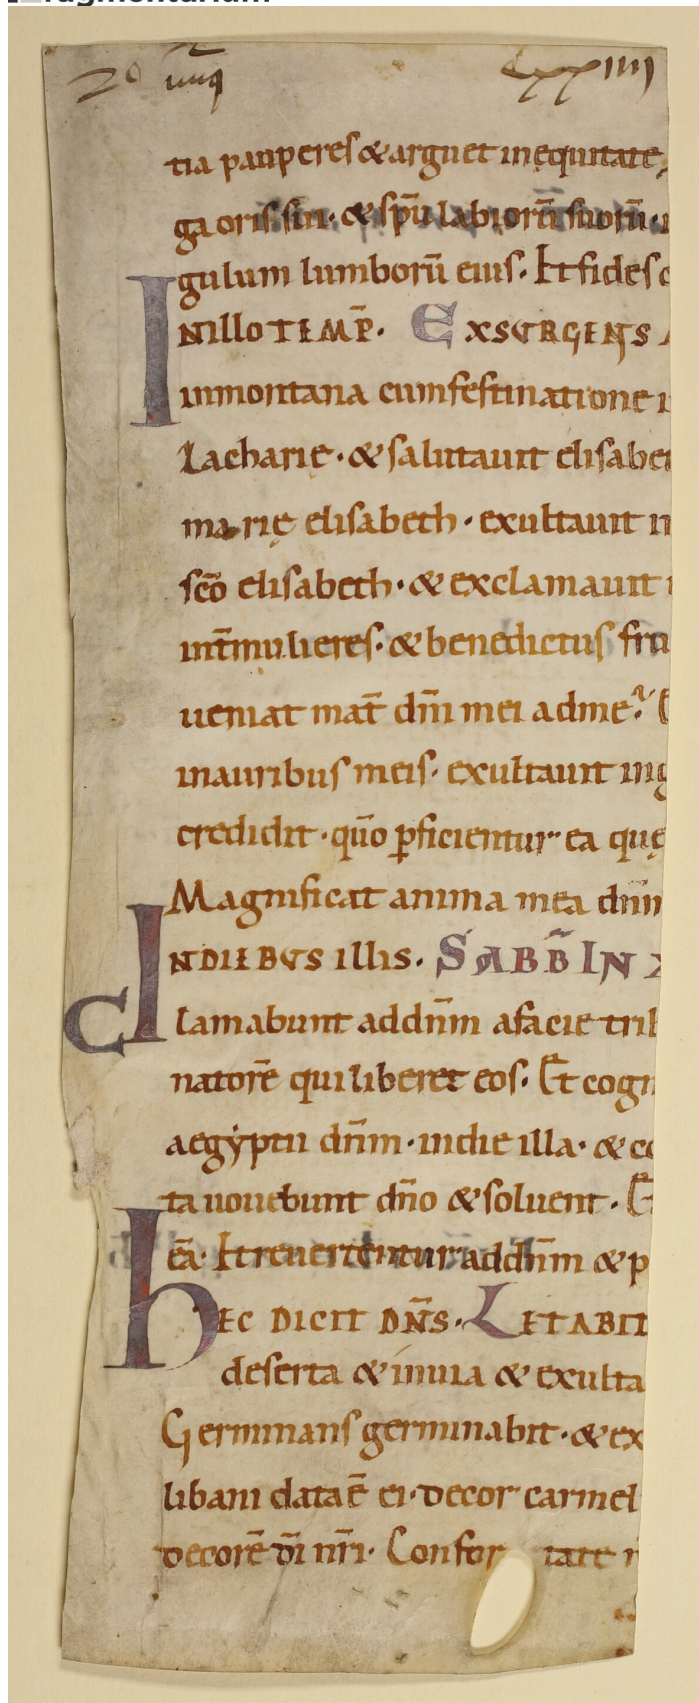 tia pauperes & arguet in equitate
ga oris sui· & spu labiorū suorū·
gulum lumborū eius· Et fides
INILLO TEMP̄. EXSURGENS
inmontana cumfestinatione
Zacharię· & salutauit elisabe
marię elisabeth· exultauit
sc̄o elisabeth· & exclamauit
int̄ mulieres· & benedictus fru
ueniat mat̄ dn̄i mei adme?
inauribus meis· exultauit ing
credidit· qūo pficientur ea quę
Magnificat anima mea dnm
INDIEBUS illis. SABB̄ IN
Clamabunt addn̄m afacie trib
natorē qui liberet eos. Et cogn
aegyptii dn̄m· indie illa· & co
ta uouebunt dn̄o & soluent·
eā· Et reuertentur addn̄m & p
hEC DICIT DN̄S. LETABIT
deserta & inuia & exulta
Germinans germinabit· & ex
libani data ē ei· decor carmel
decorē dī nr̄i· Confor tate